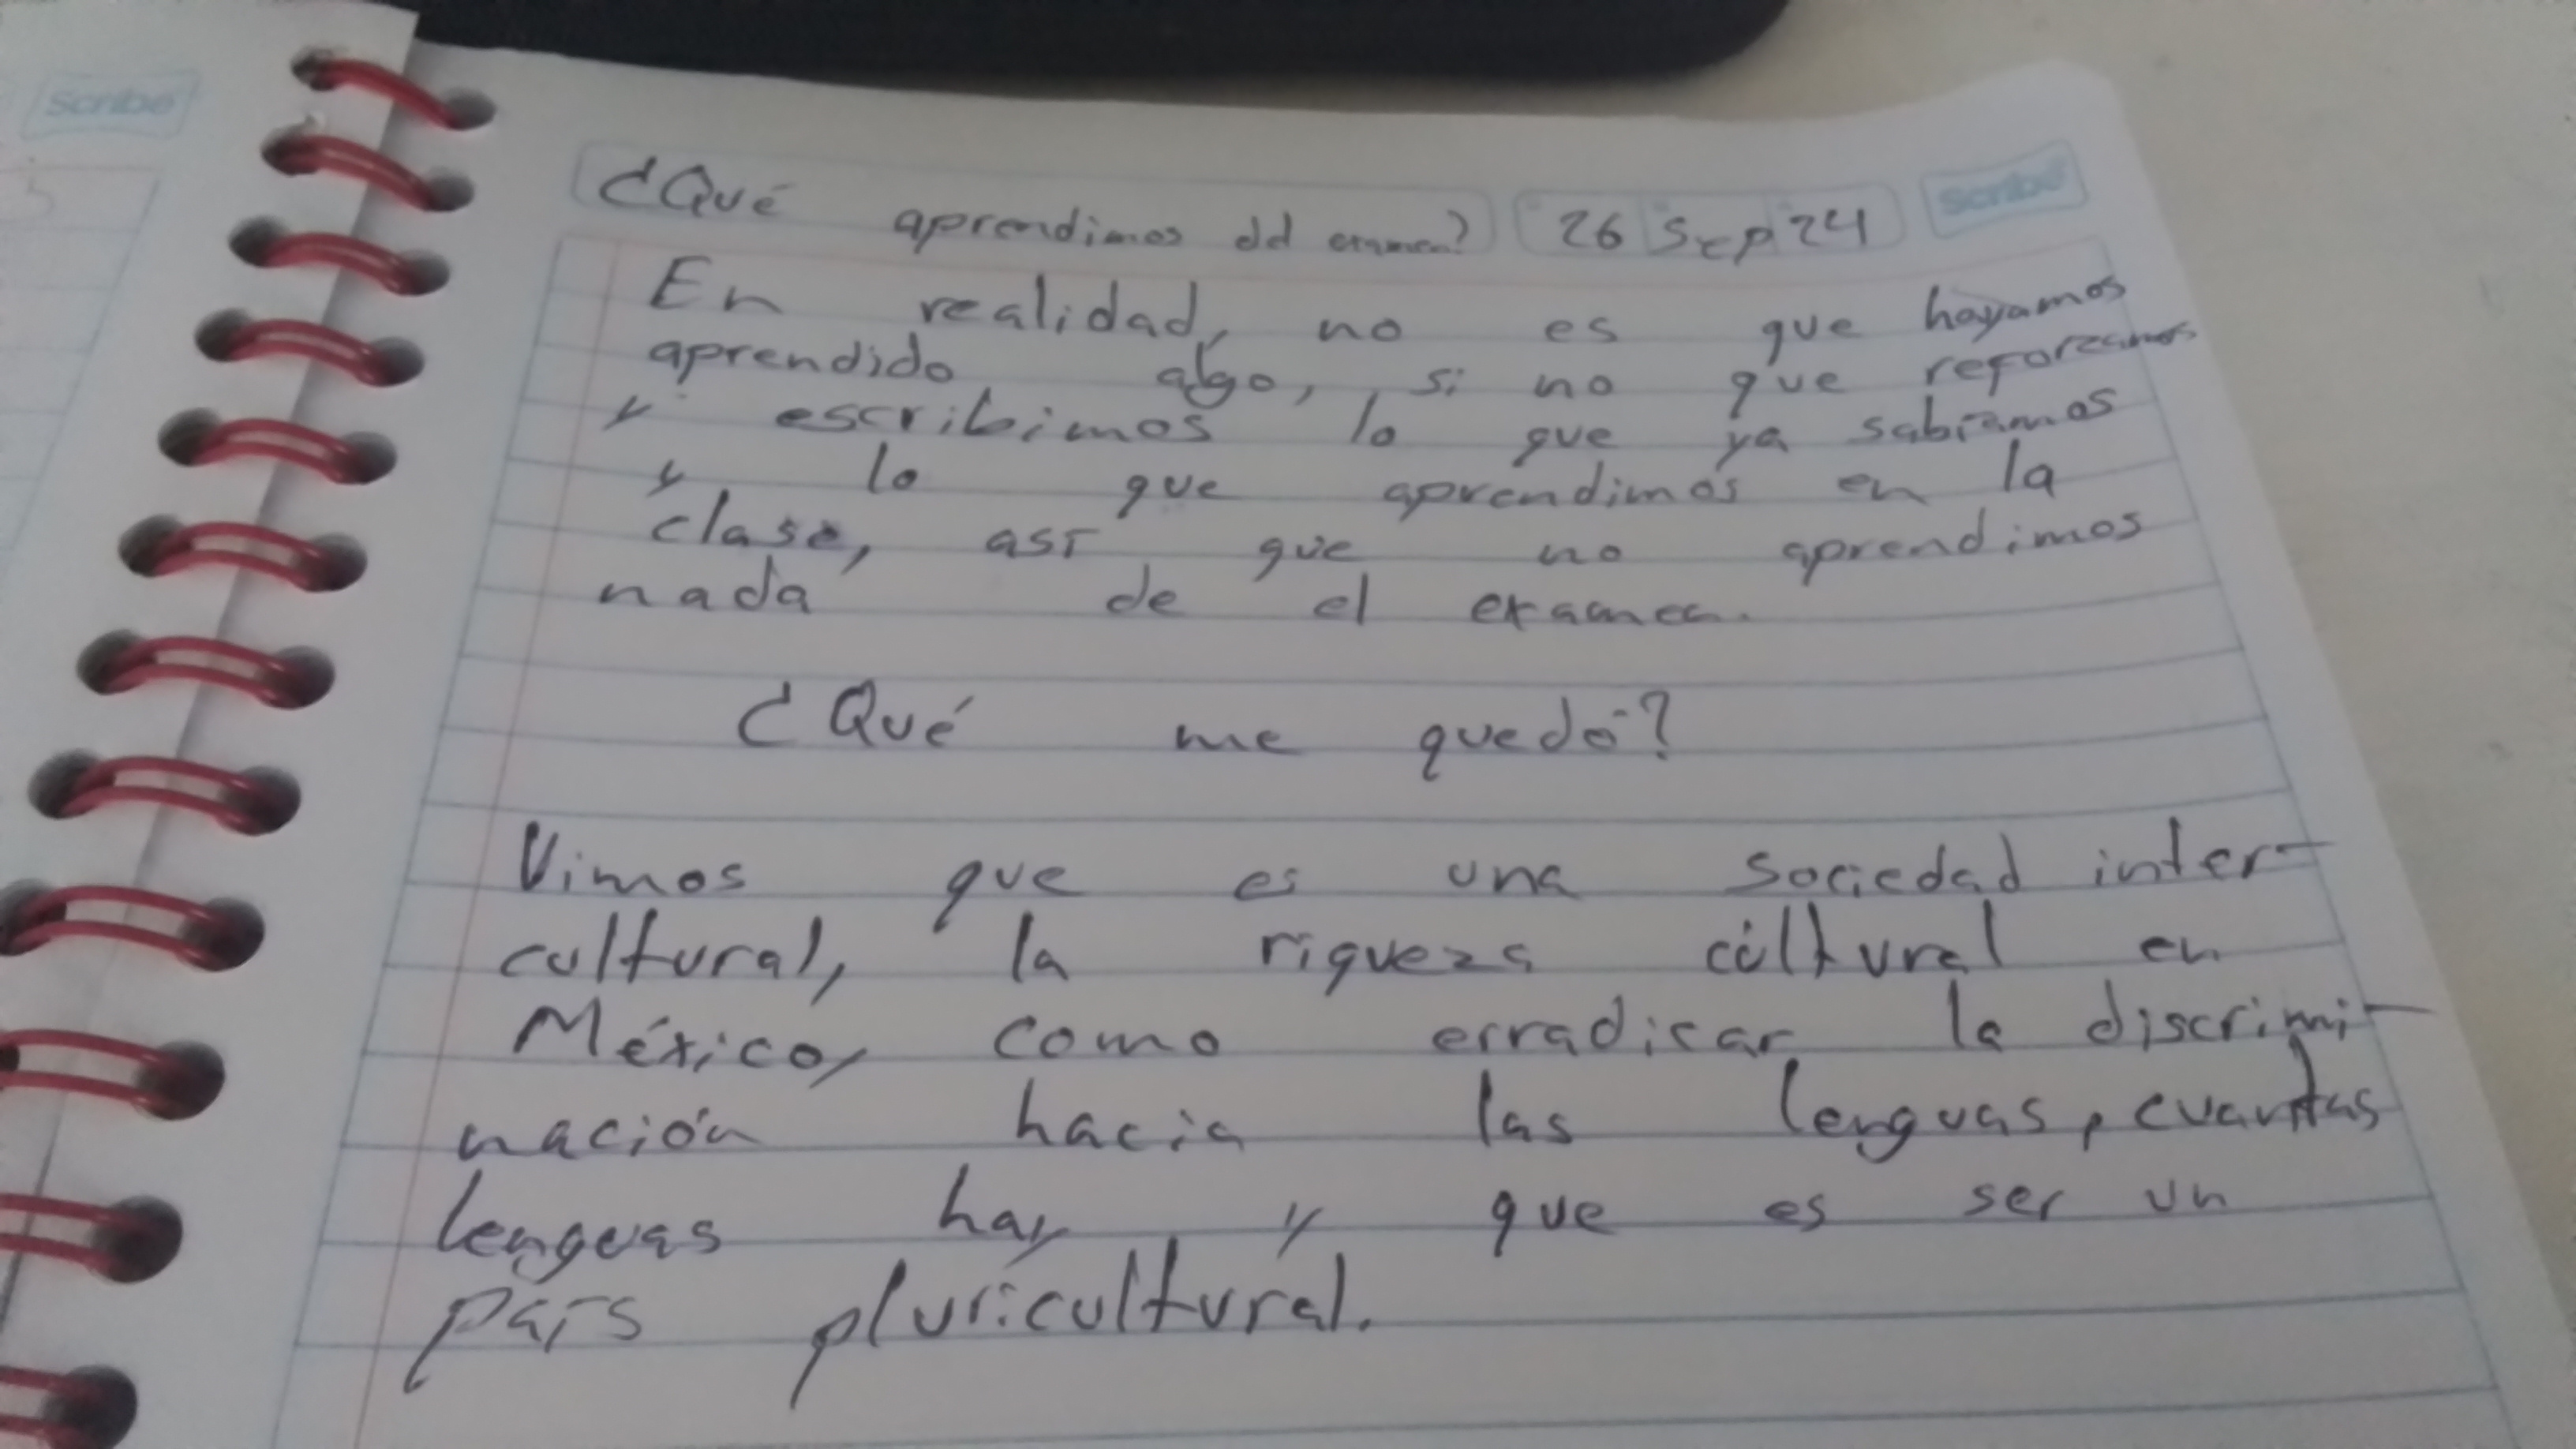 Scribe
¿Qué aprendimos del examen? 26 Sep 24 Scribe
En realidad, no es que hayamos
aprendido algo, si no que reforzamos
y escribimos lo que ya sabíamos
y lo que aprendimos en la
clase, así que no aprendimos
nada de el examen.
¿Qué me quedó?
Vimos que es una sociedad inter-
cultural, la riqueza cultural en
México, como erradicar la discrimi-
nación hacia las lenguas, cuantas
lenguas hay y que es ser un
país pluricultural.